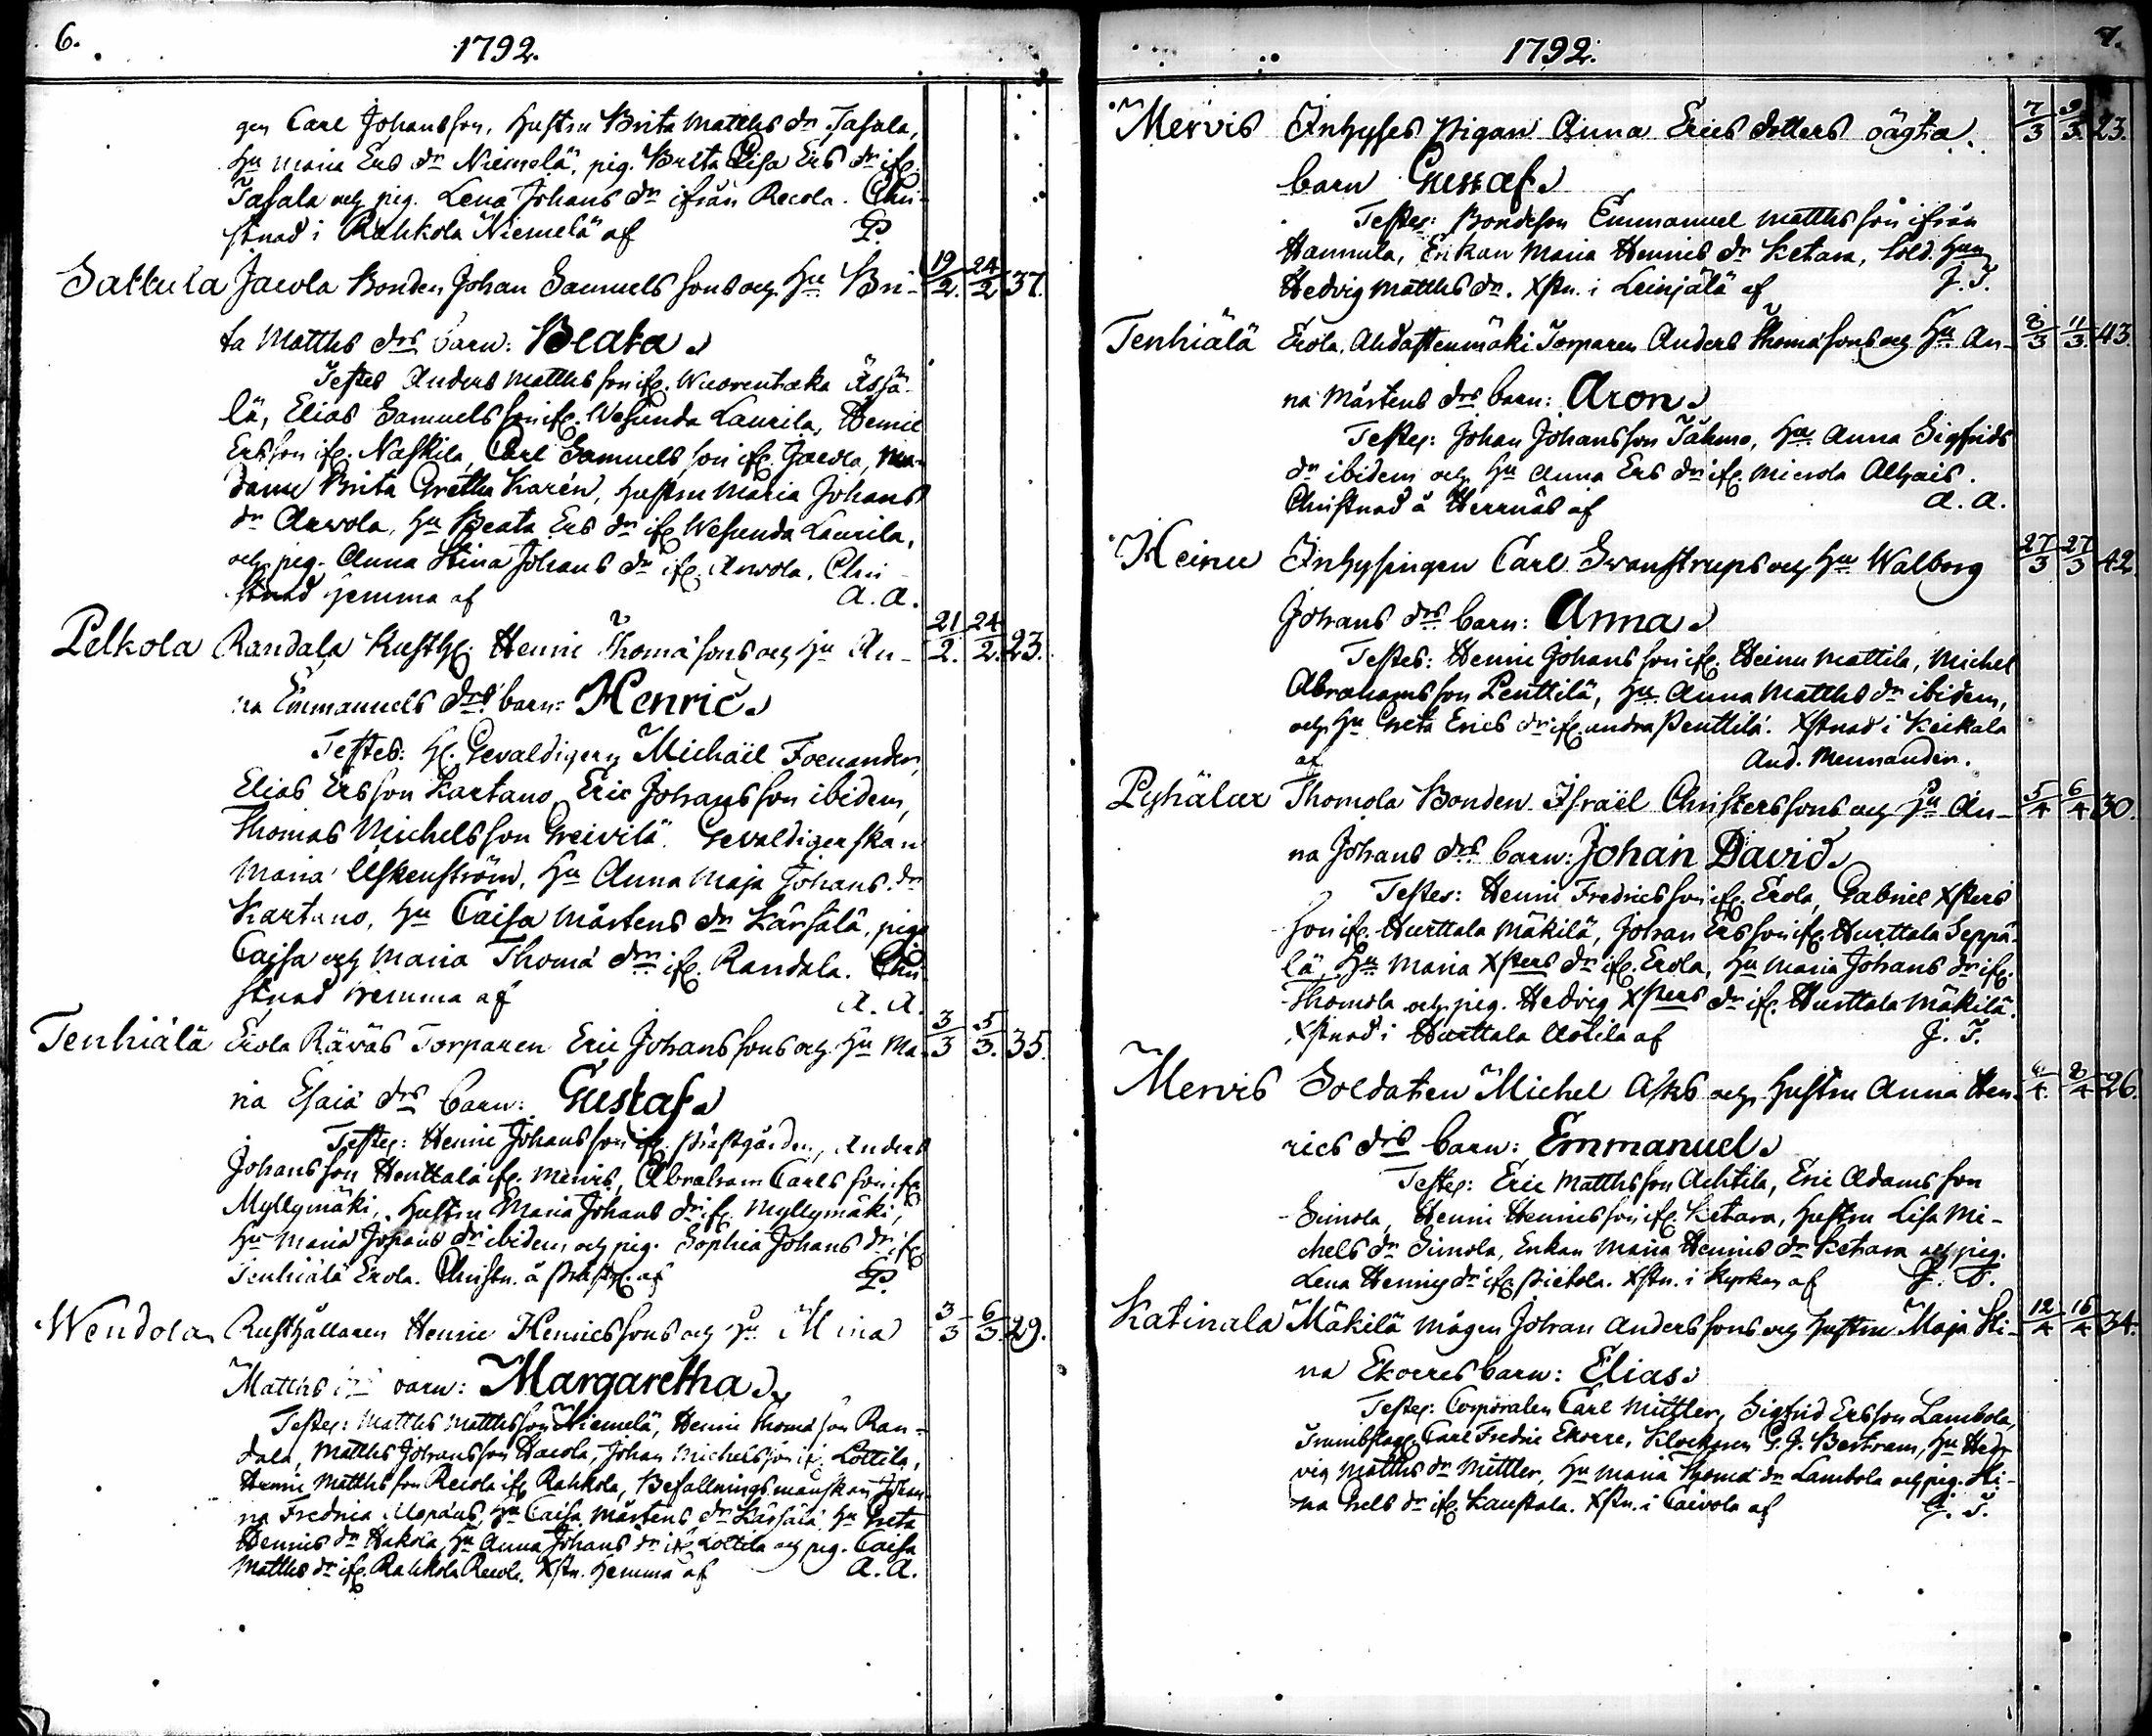 6.
1792.
gen Carl Johansson, hustru Brita Matths dr Tasala,
hu Maria Ers dr Niemelä, pig. Brita Lisa Ers dr ifr.
Tasala och pig. Lena Johans dr ifrån Recola. Chri-
stnad i Rahkola Niemelä af P.
Sattula Jacola Bonden Johan Samuels sons och hu Bri- 19/2. 24/2 37.
ta Matths drs barn: Beata.
Testes Anders Matthsson ifr. Wuorentaka Ässä-
lä, Elias Samuelsson ifr. Wesunda Laurila, Henric
Ersson ifr. Naskila, Carl Samuelsson ifr. Jacola, Ma-
dame Brita Gretha Karén, hustru Maria Johans
dr Arwola, hu Beata Ers dr ifr. Wesunda Laurila,
och pig. Anna Stina Johans dr ifr. Arwola. Chri-
stnad hemma af A. A.
Pelkola Randala Rusth. Henric Thomæ sons och hu An- 21/2. 24/2. 23.
na Emmanuels drs barn: Henric.
Testes: H. Gevaldigern Michaël Foenander,
Elias Ersson Kartano, Eric Johansson ibidem,
Thomas Michelsson Greivilä. Gevaldigerskan
Maria Uskenström, hu Anna Maja Johans dr
Kartano, hu Caisa Mårtens dr Kärsälä, pig.
Caisa och Maria Thomæ drr ifr. Randala. Chri-
stnad hemma af A. A.
Tenhiälä Erola Räväs Torparen Eric Johans sons och hu Ma- 3/3 5/3. 35.
ria Esaiæ drs barn: Gustaf.
Testes: Henric Johansson ifr. Prästgården, Anders
Johansson Henttala ifr. Mervis, Abraham Carlsson ifr.
Myllymäki, hustru Maria Johans dr ifr. Myllymäki,
hu Maria Johans dr ibidem och pig. Sophia Johans dr ifr.
Tenhiälä Erola. Christn. å Prästg. af P.
Wendola Rusthållaren Henric Henrics sons och hu Maria 3/3 6/3. 29.
Matths drs barn: Margaretha.
Testes: Matths Matthsson Niemelä, Henric Thomæ son Ran-
dala, Matths Johansson Hacola, Johan Michelsson ifr. Lottila,
Henric Matthsson Recola ifr. Rahkola, Befallningsmanskan Johan-
na Fredrica, hu Caisa Mårtens dr Kärsälä, hu Greta
Henrics dr Hakola, hu Anna Johans dr ifr. Lottila och pig. Caisa
Matths dr ifr. Rahkola Recola. Xstn. hemma af A. A.
1792. 7.
Mervis Inhyses Pigan Anna Erics dotters oägta 7/3 9/3. 23.
barn Gustaf.
Testes: Bondeson Emmanuel Matthsson ifrån
Hannula, Enkan Maria Henrics dr Ketara, Sold. hun
Hedvig Matths dr. Xstn. i Leinjälä af J. T.
Tenhiälä Erola, Ahdastenmäki Torparen Anders Thomæ sons och hu An- 8/3 11/3. 43.
na Mårtens drs barn: Aron.
Testes: Johan Johansson Tähmo, hu Anna Sigfrids
dr ibidem och hu Anna Ers dr ifr. Mierola Alhais.
Christnad å Herrnäs af A. A.
Heinu Inhysingen Carl Swanstrups och hu Walborg 27/3 27/3 42.
Johans drs barn: Anna.
Testes: Henric Johansson ifr. Heinu Mattila, Michel
Abrahamsson Penttilä, hu Anna Matths dr ibidem,
och hu Greta Erics dr ifr. andra Penttilä. Xstnad i Keikala
af And. Mennander.
Pyhälax Thomola Bonden Israël Christers sons och hu An- 5/4 6/4 30.
na Johans drs barn: Johan David.
Testes: Henric Fredricsson ifr. Erola, Gabriel Xsters
son ifr. Hurttala Mäkilä, Johan Ersson ifr. Hurttala Seppä-
lä, hu Maria Xsters dr ifr. Erola, hu Maria Johans dr ifr.
Thomola och pig. Hedvig Xsters dr ifr. Hurttala Mäkilä.
Xstnad i Hurttala Uotila af J. T.
Mervis Soldaten Michel Asks och hustru Anna Hen- 4. 8/4 26.
rics drs barn: Emmanuel.
Testes: Eric Matthsson Ahtila, Eric Adamsson
Simola, Henric Henricsson ifr. Ketara, hustru Lisa Mi-
chels dr Simola, Enkan Maria Henrics dr Ketara och pig.
Lena Henrics dr ifr. Pietola. Xstn. i Kyrkan af J. T.
Katinala Mäkilä Mågen Johan Anders sons och hustru Maja Sti- 12/4 16/4 34.
na Ekorres barn: Elias.
Testes: Corporalen Carl Mittler, Sigfrid Ersson Lambola,
Trumbslag. Carl Fredric Ekorre, Klockaren G. J. Bertram, hu Hed-
vig Matths dr Mittler, hu Maria Thomæ dr Lambola och pig. Sti-
na Nels dr ifr. Kaustala. Xstn. i Caivola af J. T.